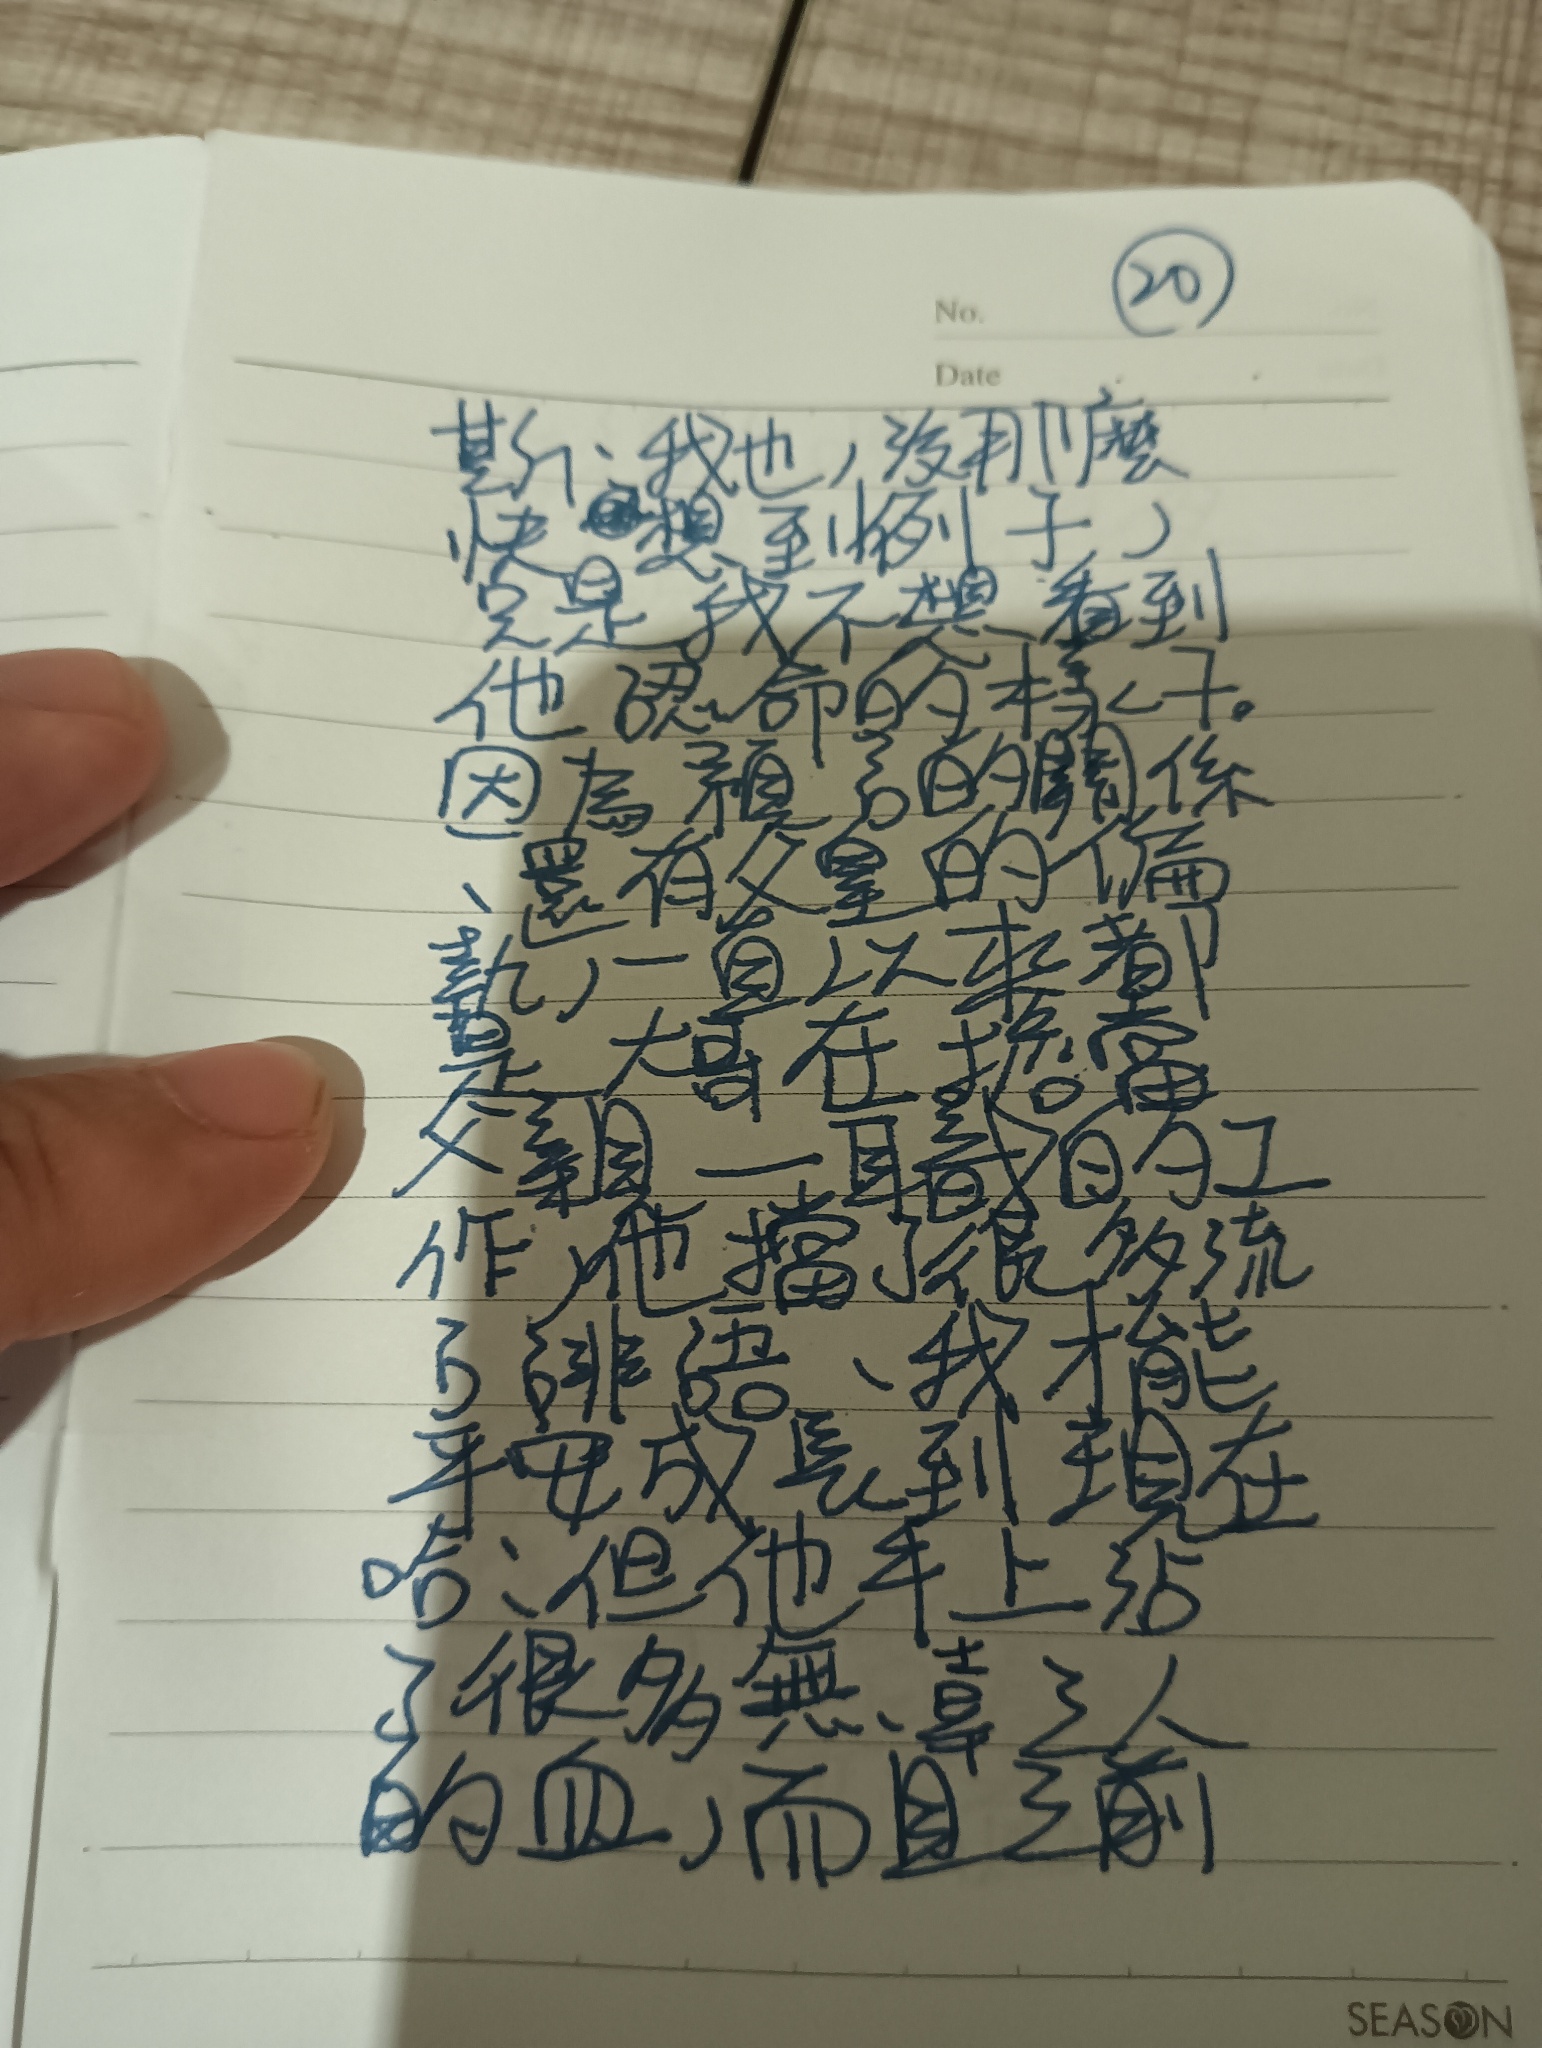 20
No.
Date
斯、我也,沒那麼
快想到例子,
只是我不想看到
他認命的樣子。
因為親弓的關係
、還有父皇的偏
執,一直以來都
是大哥在擔當
父親一職的工
作,他擋了很多流
言誹語、我才能
平安成長到現在
哈、但他手上沾
了很多無辜之人
的血,而且之前
SEASON